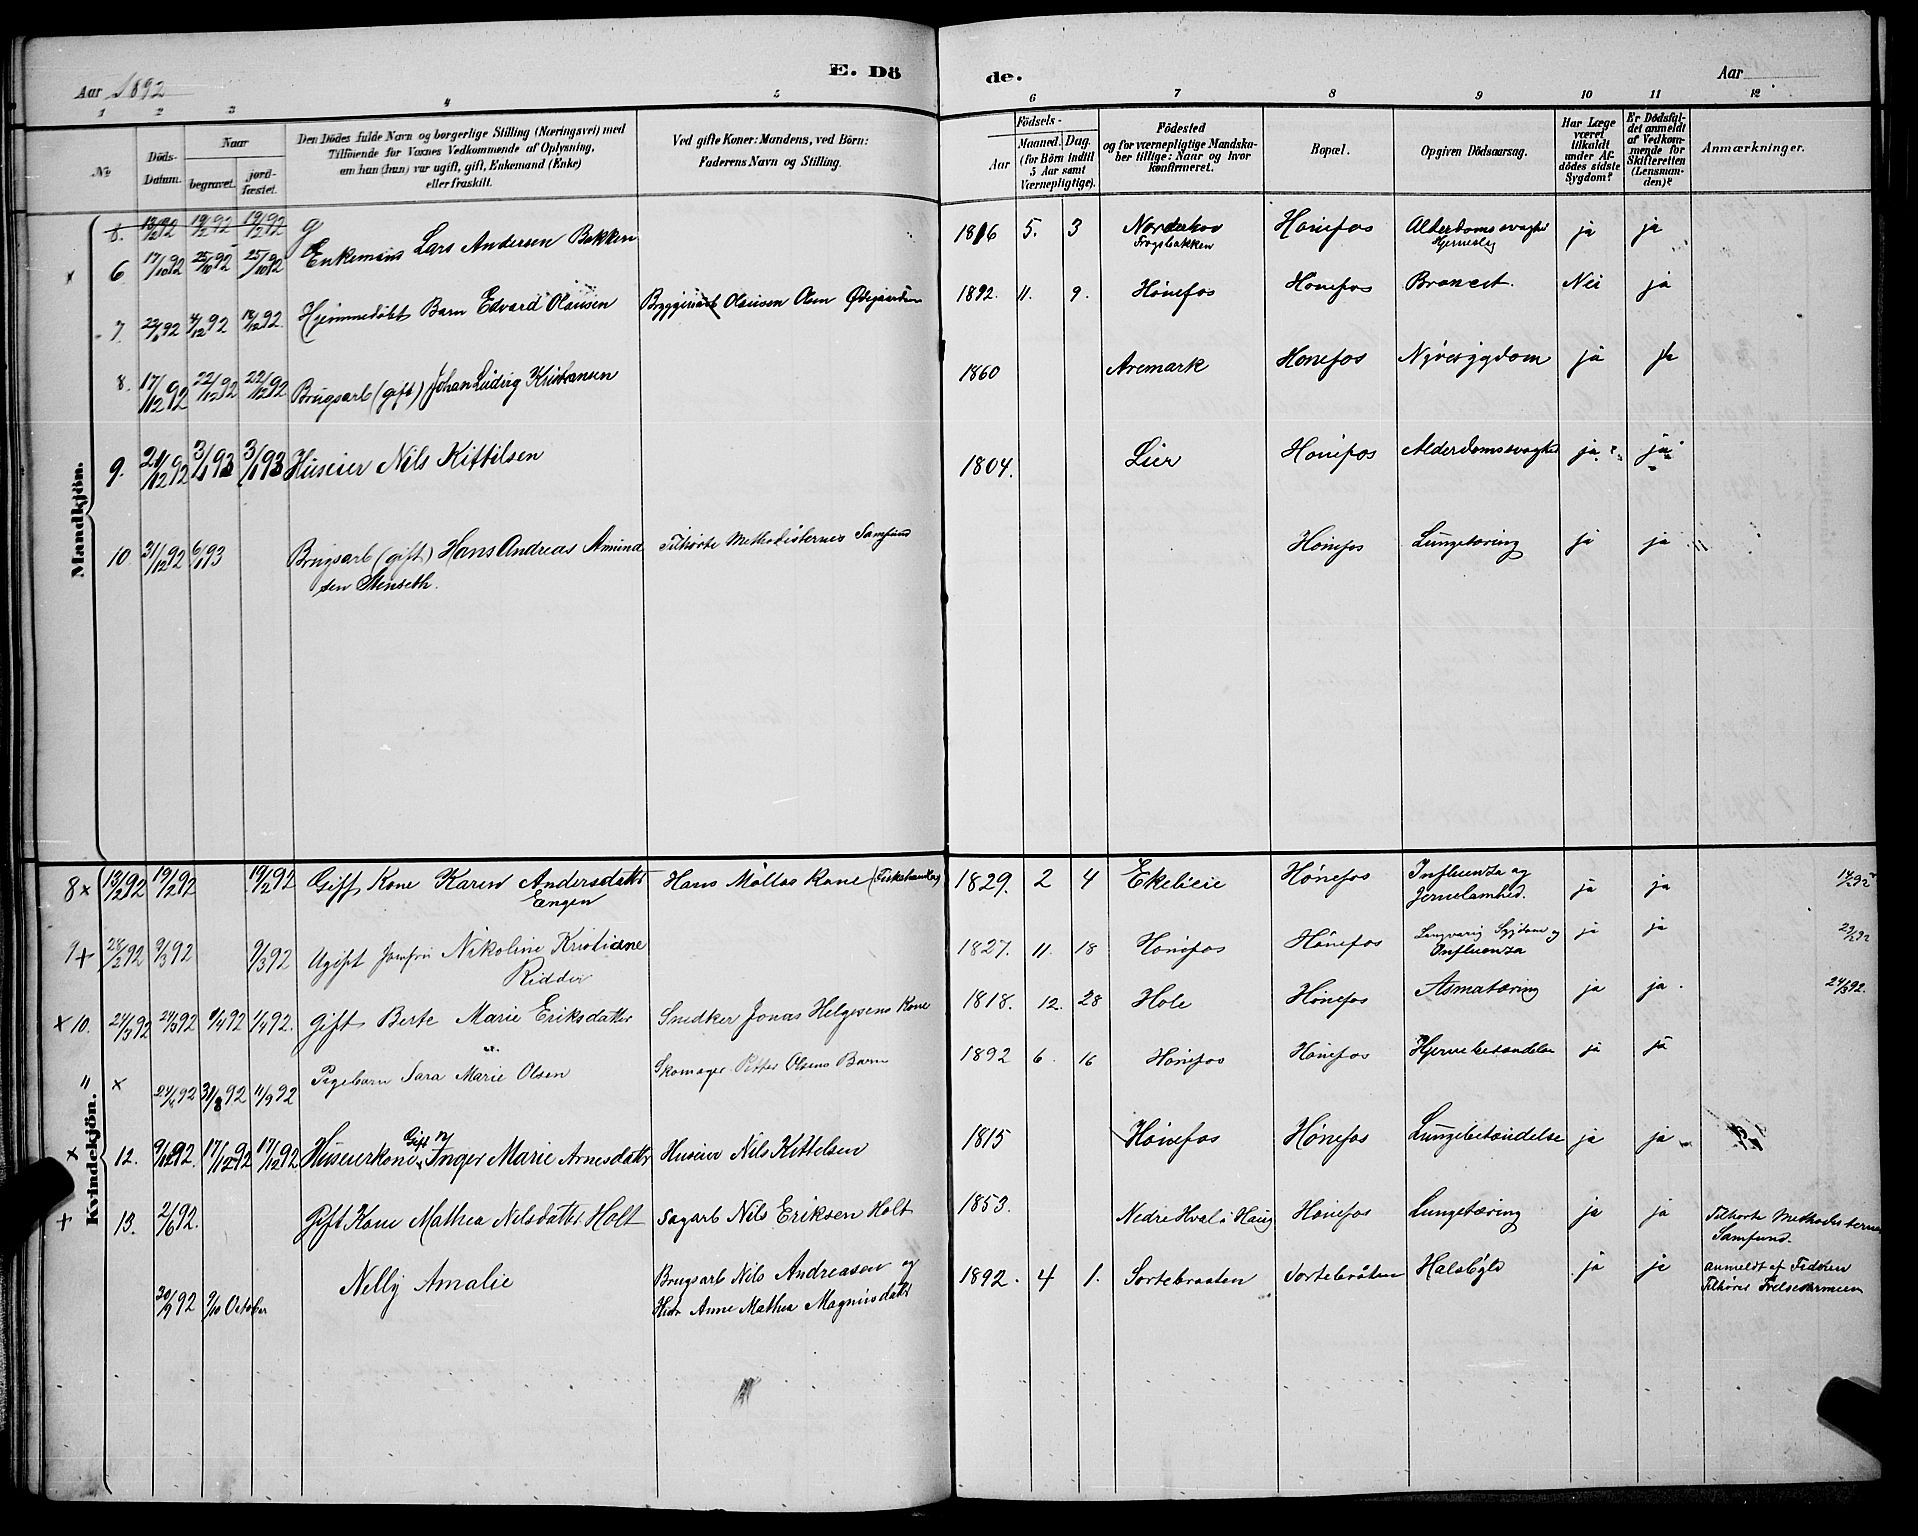 E. Dö de.
Aar 1892
Aar
1 2 3 4 5 6 7 8 9 10 11 12
№
Döds-Datum.
Naar
begravet.
jordfæstet.
Den Dödes fulde Navn og borgerlige Stilling (Næringsvei) med
Tilföiende for Voxnes Vedkommende af Oplysning,
om han (hun) var ugift, gift, Enkemand (Enke)
eller fraskilt.
Ved gifte Koner: Mandens, ved Börn:
Faderens Navn og Stilling.
Födsels-
Aar
Maaned. Dag.
(for Börn indtil
5 Aar samt
Værnepligtige).
Födested
og for værnepligtige Mandskaber tillige: Naar og hvor
konfirmeret.
Bopæl.
Opgiven Dödsaarsag.
Har Læge
været
tilkaldt
under Afdödes sidste
Sygdom?
Er Dödsfaldet anmeldt
af Vedkommende for
Skifteretten
(Lensmanden)?
Anmærkninger.
Mandkjön.
8. 13/2 92 19/2 92 19/2 92 G
x 6 17/10 92 25/10 92 25/10 92 Enkemans Lars Andersen Bakken 1816 5. 3 Norderhov Hönefos Alderdomssvaghed ja ja
Hjerneslag
7. 92 4/12 92 18/12 92 Hjemmedöbt Barn Edvard Olausen Olausen Ödegaarden 1892. 11. 9. Hönefos Hönefos Broncit. Nei ja
8. 17/12 92 22/12 92 22/12 92 Brugsarb (gift) Johan Ludvig Kristiansen 1860 Aremark Hönefos Nyresygdom ja ja
9. 21/12 92 3/1 93 3/1 93 Huseier Nils Kittilsen 1804. Lier Hönefos Alderdomssvaghed ja ja
10. 31/12 92 6/1 93 Brugsarb (gift) Hans Andreas Amund Tilhørte Methodisternes Samfund Hönefos Lungetæring ja ja
sen Stenseth.
Kvindekjön.
8 x 13/2 92 19/2 92 19/2 92 Gift Kone Karen Andersdatter Hans Möllas Kone (Fiskehandler) 1829. 2 4 Ekelieie Hönefos Influenza og ja ja
Engen Hjernelamhed.
9 + 28/2 92 9/3 92 9/3 92 Ugift Jomfru Nikoline Kristiane 1827. 11. 18 Hönefos Hönefos Langvarig Sygdom og ja ja
Ridder Influenza
x 10. 24/3 92 29/3 92 1/4 92 1/4 92. Gift Berte Marie Eriksdatter Snedker Jonas Helgesens Kone 1818. 12. 28 Hole Hönefos Asmatæring ja ja. 24/3 92.
" x 92 31/8 92 4/9 92 Pigebarn Sara Marie Olsen Skomager Petter Olsens Barn 1892 6. 16 Hönefos Hönefos Hjernebetændelse ja ja
x 12. 9/12 92. 17/12 92 17/12 92 Huseierkone Gift Inger Marie Arnesdatter Huseier Nils Kittelsen 1815 Hönefos Hönefos Lungebetændelse ja ja
+ 13. 2/6 92. Gift Kone Mathea Nilsdatter Holt Sagarb Nils Eriksen Holt 1853. Nedre Hval i Haug Hönefos Lungetæring ja ja Tilhørte Methodisternes
Samfund.
20/9 92 9/10 October Nelly Amalie Brugsarb Nils Andreasen og 1892. 4 1. Sortebraaten Sortebråten Halsbyld ja ja anmeldt af Faderen
Hustr Anne Mathea Magnusdatter Tilhører Frelsesarmeen